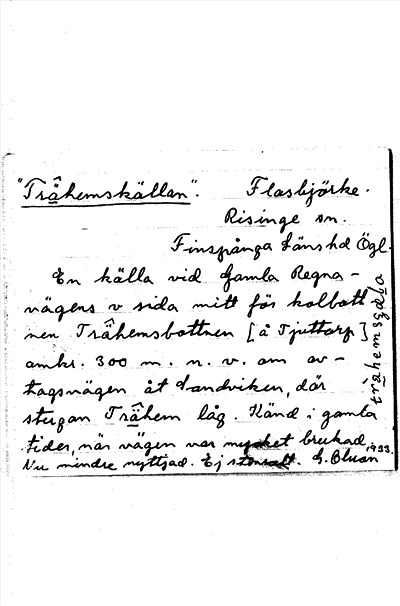 "Trähemskällan". Flasbjörke.
Risinge sn.
Finspånga läns hd Ögl.
En källa vid gamla Regna-
vägens v sida mitt för kolbott
nen Trähemsbottnen [å Tjuttorp]
omkr. 300 m. n. v. om av-
tagsvägen åt Sandviken, där
stugan Trähem låg. Känd i gamla
tider, när vägen var mycket brukad.
Nu mindre nyttjad. Ej stensatt. G. Olson
1933.